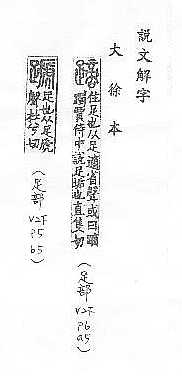 說文解字
大徐本
蹢 住足也从足適省聲或曰蹢
躅賈侍中說足垢也直隻切
(足部 V2下 P6 a5)
蹏 足也从足虒
聲杜兮切
(足部 V2下 P5 b5)